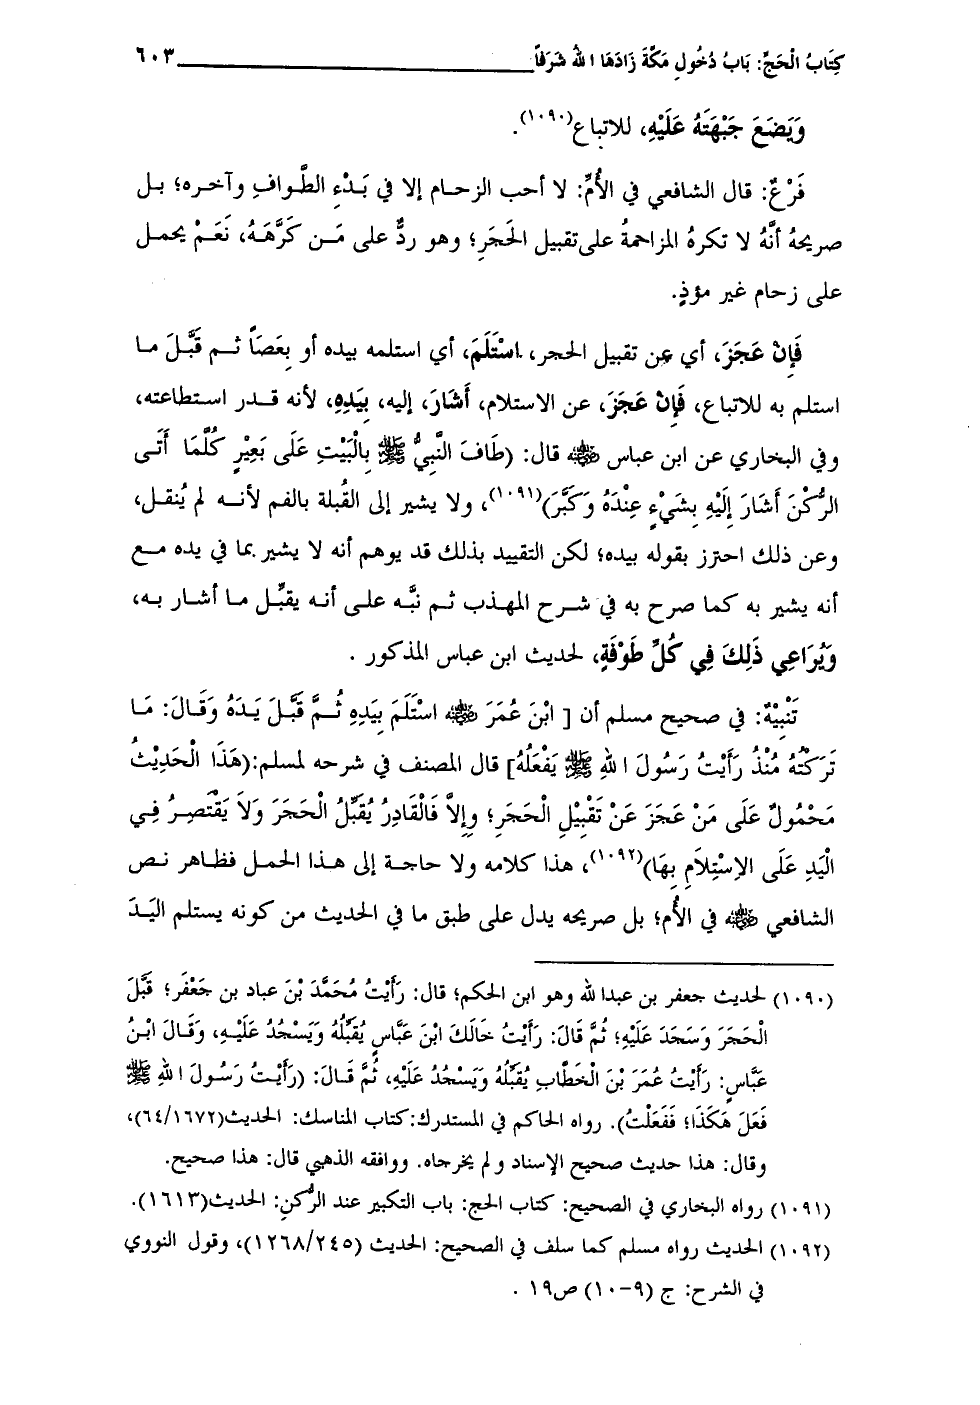 كِتَابُ الْحَجِّ: بَابُ دُخُولِ مَكَّةَ زَادَهَا اللهُ شَرَفاً ٦٠٣
وَيَضَعَ جَبْهَتَهُ عَلَيْهِ، للاتباع(١٠٩٠).
فَرْعٌ: قال الشافعي في الأُمِّ: لا أحب الزحام إلا في بَدْءِ الطَّوافِ وآخره؛ بل
صريحهُ أنَّهُ لا تكرهُ المزاحمةُ على تقبيل الحَجَرِ؛ وهو ردٌّ على مَن كَرَّهَهُ، نَعَمْ يحمل
على زحام غير مؤذٍ.
فَإِنْ عَجَزَ، أي عن تقبيل الحجر، اسْتَلَمَ، أي استلمه بيده أو بِعَصَاً ثم قَبَّلَ ما
استلم به للاتباع، فَإِنْ عَجَزَ، عن الاستلام، أَشَارَ، إليه، بِيَدِهِ، لأنه قدر استطاعته،
وفي البخاري عن ابن عباس ﷺ قال: (طَافَ النَّبِيُّ ﷺ بِالْبَيْتِ عَلَى بَعِيْرٍ كُلَّمَا أَتَى
الرُّكْنَ أَشَارَ إِلَيْهِ بِشَيْءٍ عِنْدَهُ وَكَبَّرَ)(١٠٩١)، ولا يشير إلى القُبلة بالفم لأنه لم يُنقل،
وعن ذلك احترز بقوله بيده؛ لكن التقييد بذلك قد يوهم أنه لا يشير بما في يده مع
أنه يشير به كما صرح به في شرح المهذب ثم نبَّه على أنه يقبِّل ما أشار به،
وَيُرَاعِي ذَلِكَ فِي كُلِّ طَوْفَةٍ، لحديث ابن عباس المذكور .
تَنْبِيْهٌ: في صحيح مسلم أن [ ابْنَ عُمَرَ ﷺ اسْتَلَمَ بِيَدِهِ ثُمَّ قَبَّلَ يَدَهُ وَقَالَ: مَا
تَرَكْتُهُ مُنْذُ رَأَيْتُ رَسُولَ اللهِ ﷺ يَفْعَلُهُ] قال المصنف في شرحه لمسلم:(هَذَا الْحَدِيْثُ
مَحْمُولٌ عَلَى مَنْ عَجَزَ عَنْ تَقْبِيْلِ الْحَجَرِ؛ وإِلاَّ فَالْقَادِرُ يُقَبِّلُ الْحَجَرَ وَلاَ يَقْتَصِرُ فِي
الْيَدِ عَلَى الاِسْتِلاَمِ بِهَا)(١٠٩٢)، هذا كلامه ولا حاجة إلى هذا الحمل فظاهر نص
الشافعي ﷺ في الأُم؛ بل صريحه يدل على طبق ما في الحديث من كونه يستلم اليَدَ
(١٠٩٠) لحديث جعفر بن عبدالله وهو ابن الحكم؛ قال: رَأَيْتُ مُحَمَّدَ بْنَ عباد بن جَعْفَر؛ قَبَّلَ
الْحَجَرَ وَسَجَدَ عَلَيْهِ؛ ثُمَّ قَالَ: رَأَيْتُ خَالَكَ ابْنَ عَبَّاسٍ يُقَبِّلُهُ وَيَسْجُدُ عَلَيْهِ، وَقَالَ ابْنُ
عَبَّاسٍ: رَأَيْتُ عُمَرَ بْنَ الْخَطَّابِ يُقَبِّلُهُ وَيَسْجُدُ عَلَيْهِ، ثُمَّ قَالَ: (رَأَيْتُ رَسُولَ اللهِ ﷺ
فَعَلَ هَكَذَا؛ فَفَعَلْتُ). رواه الحاكم في المستدرك:كتاب المناسك: الحديث(٦٤/١٦٧٢)،
وقال: هذا حديث صحيح الإسناد ولم يخرجاه. ووافقه الذهبي قال: هذا صحيح.
(١٠٩١) رواه البخاري في الصحيح: كتاب الحج: باب التكبير عند الرُّكنِ: الحديث(١٦١٣).
(١٠٩٢) الحديث رواه مسلم كما سلف في الصحيح: الحديث (١٢٦٨/٢٤٥)، وقول النووي
في الشرح: ج (٩-١٠) ص١٩ .